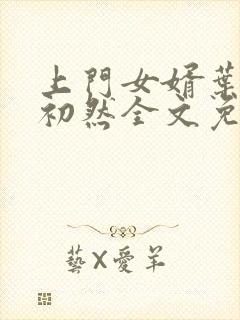 上門女婿葉
初然全文免
藝X愛羊